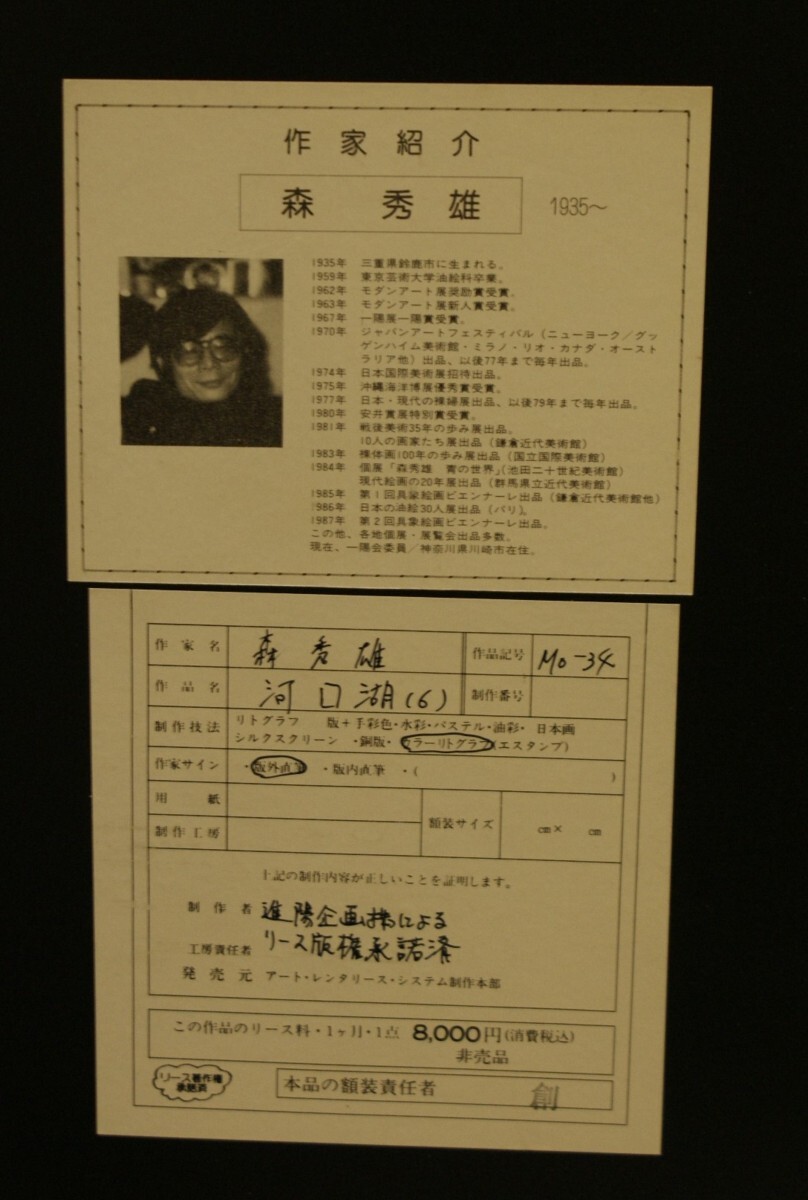 作家紹介
森 秀雄 1935〜
1935年 三重県鈴鹿市に生まれる。
1959年 東京芸術大学油絵科卒業。
1962年 モダンアート展奨励賞受賞。
1963年 モダンアート展新人賞受賞。
1967年 一陽展一陽賞受賞。
1970年 ジャパンアートフェスティバル（ニューヨーク／グッ
ゲンハイム美術館・ミラノ・リオ・カナダ・オースト
ラリア他）出品、以後77年まで毎年出品。
1974年 日本国際美術展招待出品。
1975年 沖縄海洋博展優秀賞受賞。
1977年 日本・現代の裸婦展出品、以後79年まで毎年出品。
1980年 安井賞展特別賞受賞。
1981年 戦後美術35年の歩み展出品。
10人の画家たち展出品（鎌倉近代美術館）
1983年 裸体画100年の歩み展出品（国立国際美術館）
1984年 個展「森秀雄 青の世界」（池田二十世紀美術館）
現代絵画の20年展出品（群馬県立近代美術館）
1985年 第1回具象絵画ビエンナーレ出品（鎌倉近代美術館他）
1986年 日本の油絵30人展出品（パリ）。
1987年 第2回具象絵画ビエンナーレ出品。
この他、各地個展・展覧会出品多数。
現在、一陽会委員／神奈川県川崎市在住。
作家名 森秀雄 作品記号 Mo-34
作品名 河口湖(6) 制作番号
制作技法 リトグラフ 版+手彩色・水彩・パステル・油彩・日本画
シルクスクリーン ・銅版・カラーリトグラフ(エスタンプ)
作家サイン ・版外直筆 ・版内直筆 ・( )
用紙 額装サイズ cm× cm
制作工房
上記の制作内容が正しいことを証明します。
制作者 進陽企画㈱による
工房責任者 リース版権承諾済
発売元 アート・レンタリース・システム制作本部
この作品のリース料・1ヶ月・1点 8,000円(消費税込)
非売品
リース著作権
承認済
本品の額装責任者 創